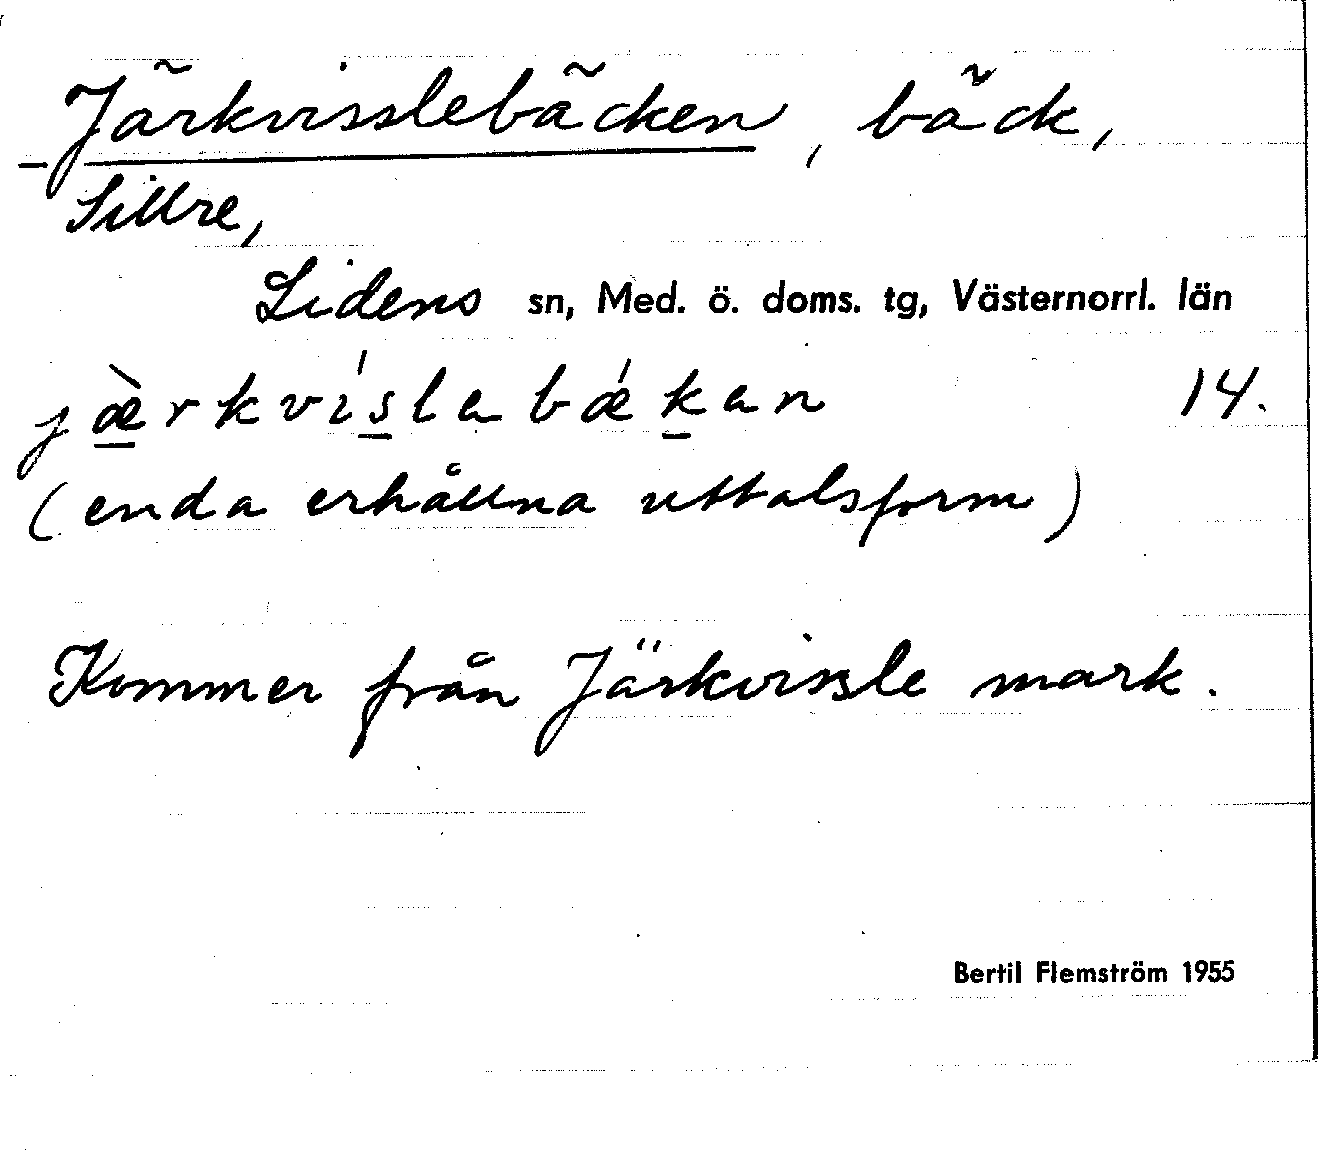 Järkvisslebäcken, bäck,
Sillre,
Lidens sn, Med. ö. doms. tg, Västernorrl. län
jæ̀rkvíslabǽkan 14.
(enda erhållna uttalsform)
Kommer från Järkvissle mark.
Bertil Flemström 1955